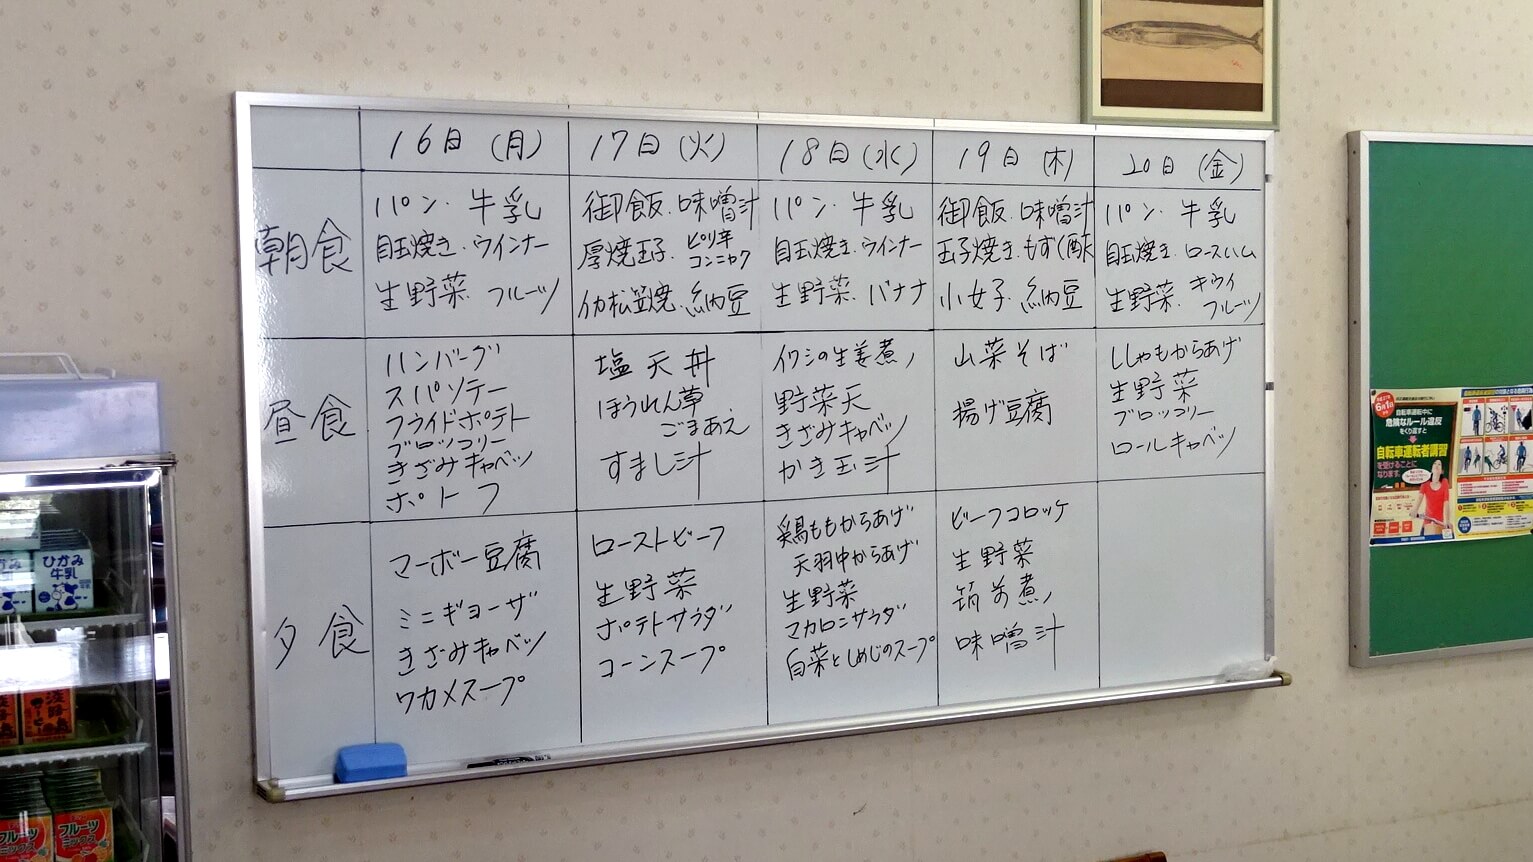 16日 (月)
17日 (火)
18日 (水)
19日 (木)
20日 (金)
朝食
パン・牛乳
目玉焼き・ウインナー
生野菜 フルーツ
御飯・味噌汁
厚焼玉子・ピリ辛
コンニャク
イカ松笠焼・納豆
パン・牛乳
目玉焼き・ウインナー
生野菜・バナナ
御飯・味噌汁
玉子焼き・もずく酢
小女子・納豆
パン・牛乳
目玉焼き・ロースハム
生野菜・キウイ
フルーツ
昼食
ハンバーグ
スパソテー
フライドポテト
ブロッコリー
きざみキャベツ
ポトフ
塩天丼
ほうれん草
ごまあえ
すまし汁
イワシの生姜煮
野菜天
きざみキャベツ
かき玉汁
山菜そば
揚げ豆腐
ししゃもからあげ
生野菜
ブロッコリー
ロールキャベツ
夕食
マーボー豆腐
ミニギョーザ
きざみキャベツ
ワカメスープ
ローストビーフ
生野菜
ポテトサラダ
コーンスープ
鶏ももからあげ
手羽中からあげ
生野菜
マカロニサラダ
白菜としめじのスープ
ビーフコロッケ
生野菜
筑前煮
味噌汁
6月1日
自転車運転中に
危険なルール違反
をくり返すと
自転車運転者講習
を受けることに
なります。
ひがみ
牛乳
フルーツ
ミックス
フルーツ
ミックス